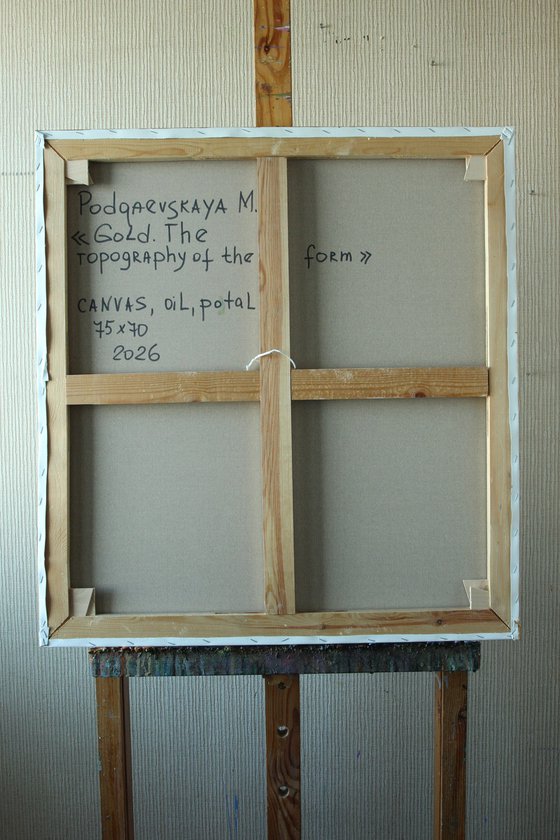 Podgaevskaya M.
« Gold. The
Topography of the form »
CANVAS, OIL, potal
75x70
2026